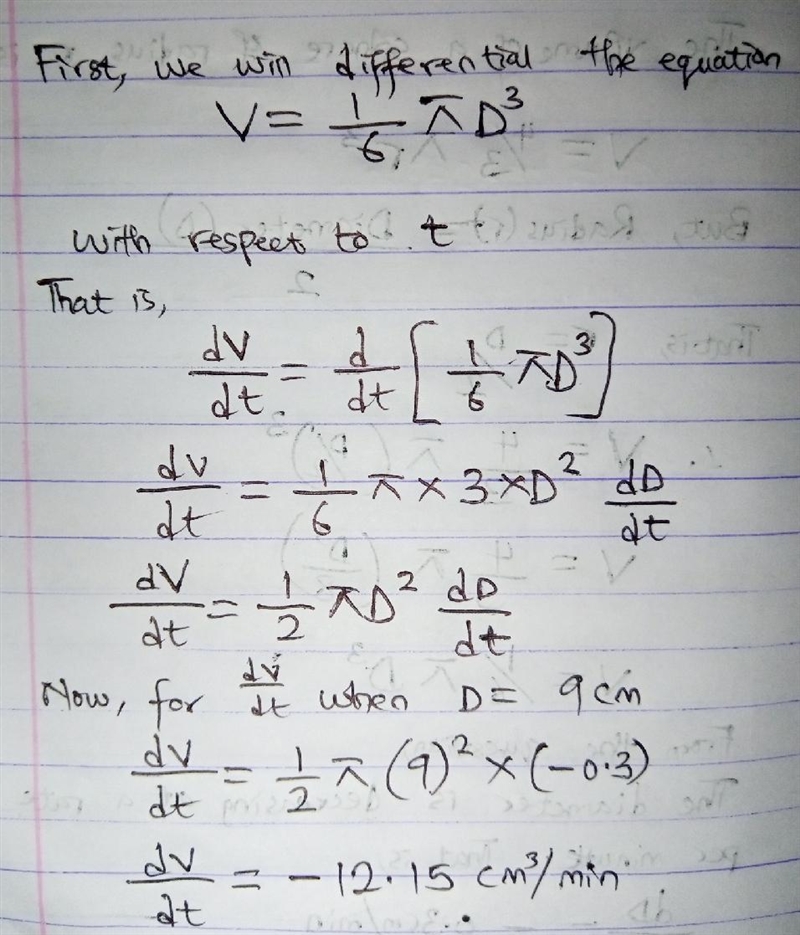 First, we win differential the equation
V = 1/6 πD³
with respect to t
That is,
dV/dt = d/dt [1/6 πD³]
dV/dt = 1/6 π × 3 × D² dD/dt
dV/dt = 1/2 πD² dD/dt
Now, for dV/dt when D = 9 cm
dV/dt = 1/2 π (9)² × (-0.3)
dV/dt = -12.15 cm³/min.